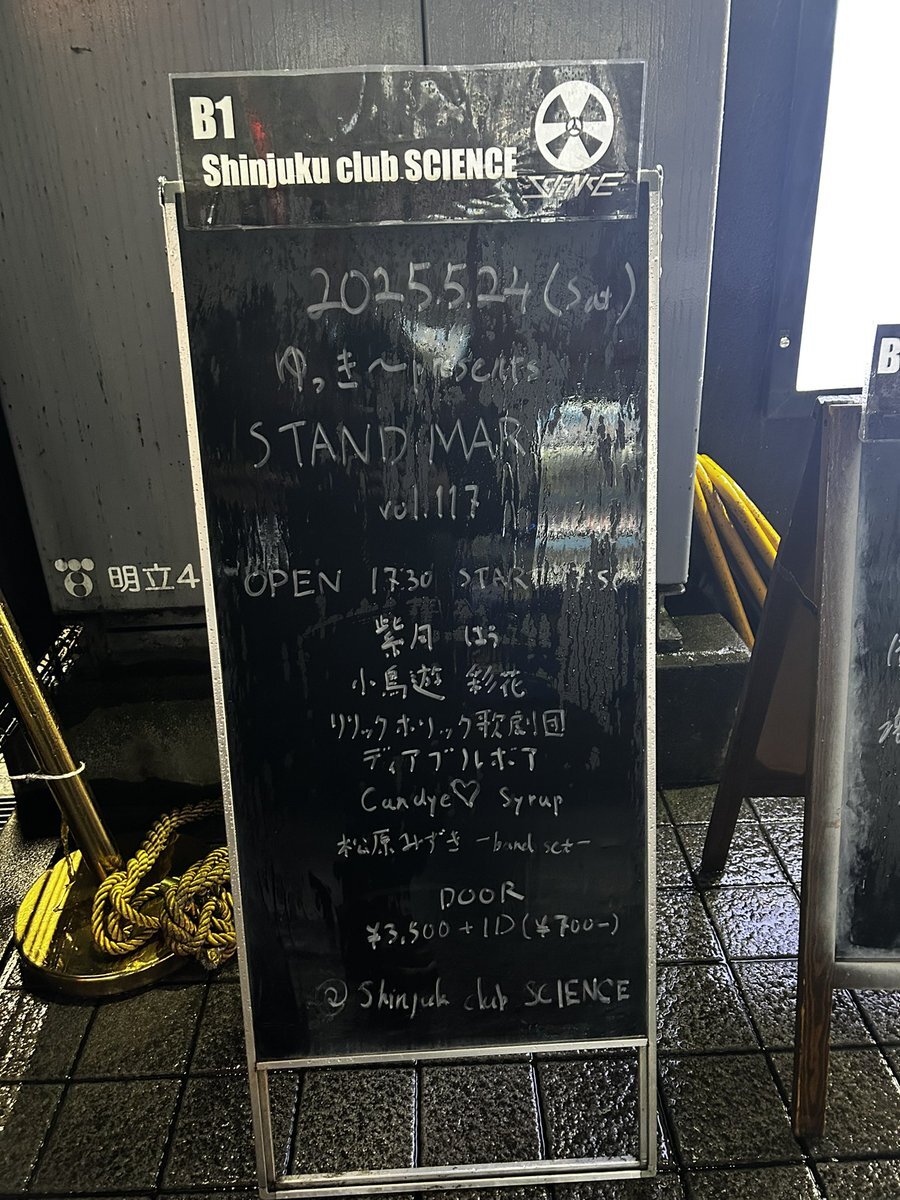 B1
Shinjuku club SCIENCE
SCIENCE
2025.5.24 (Sat)
ゆっき〜presents
STAND MAR
vol.117
OPEN 17:30 START 17:50
紫月 ほう
小鳥遊 彩花
リリックホリック歌劇団
ディアブルボア
Candye♡Syrup
松原みずき -band set-
DOOR
¥3,500+1D(¥700-)
@ Shinjuk club SCIENCE
明立4
B